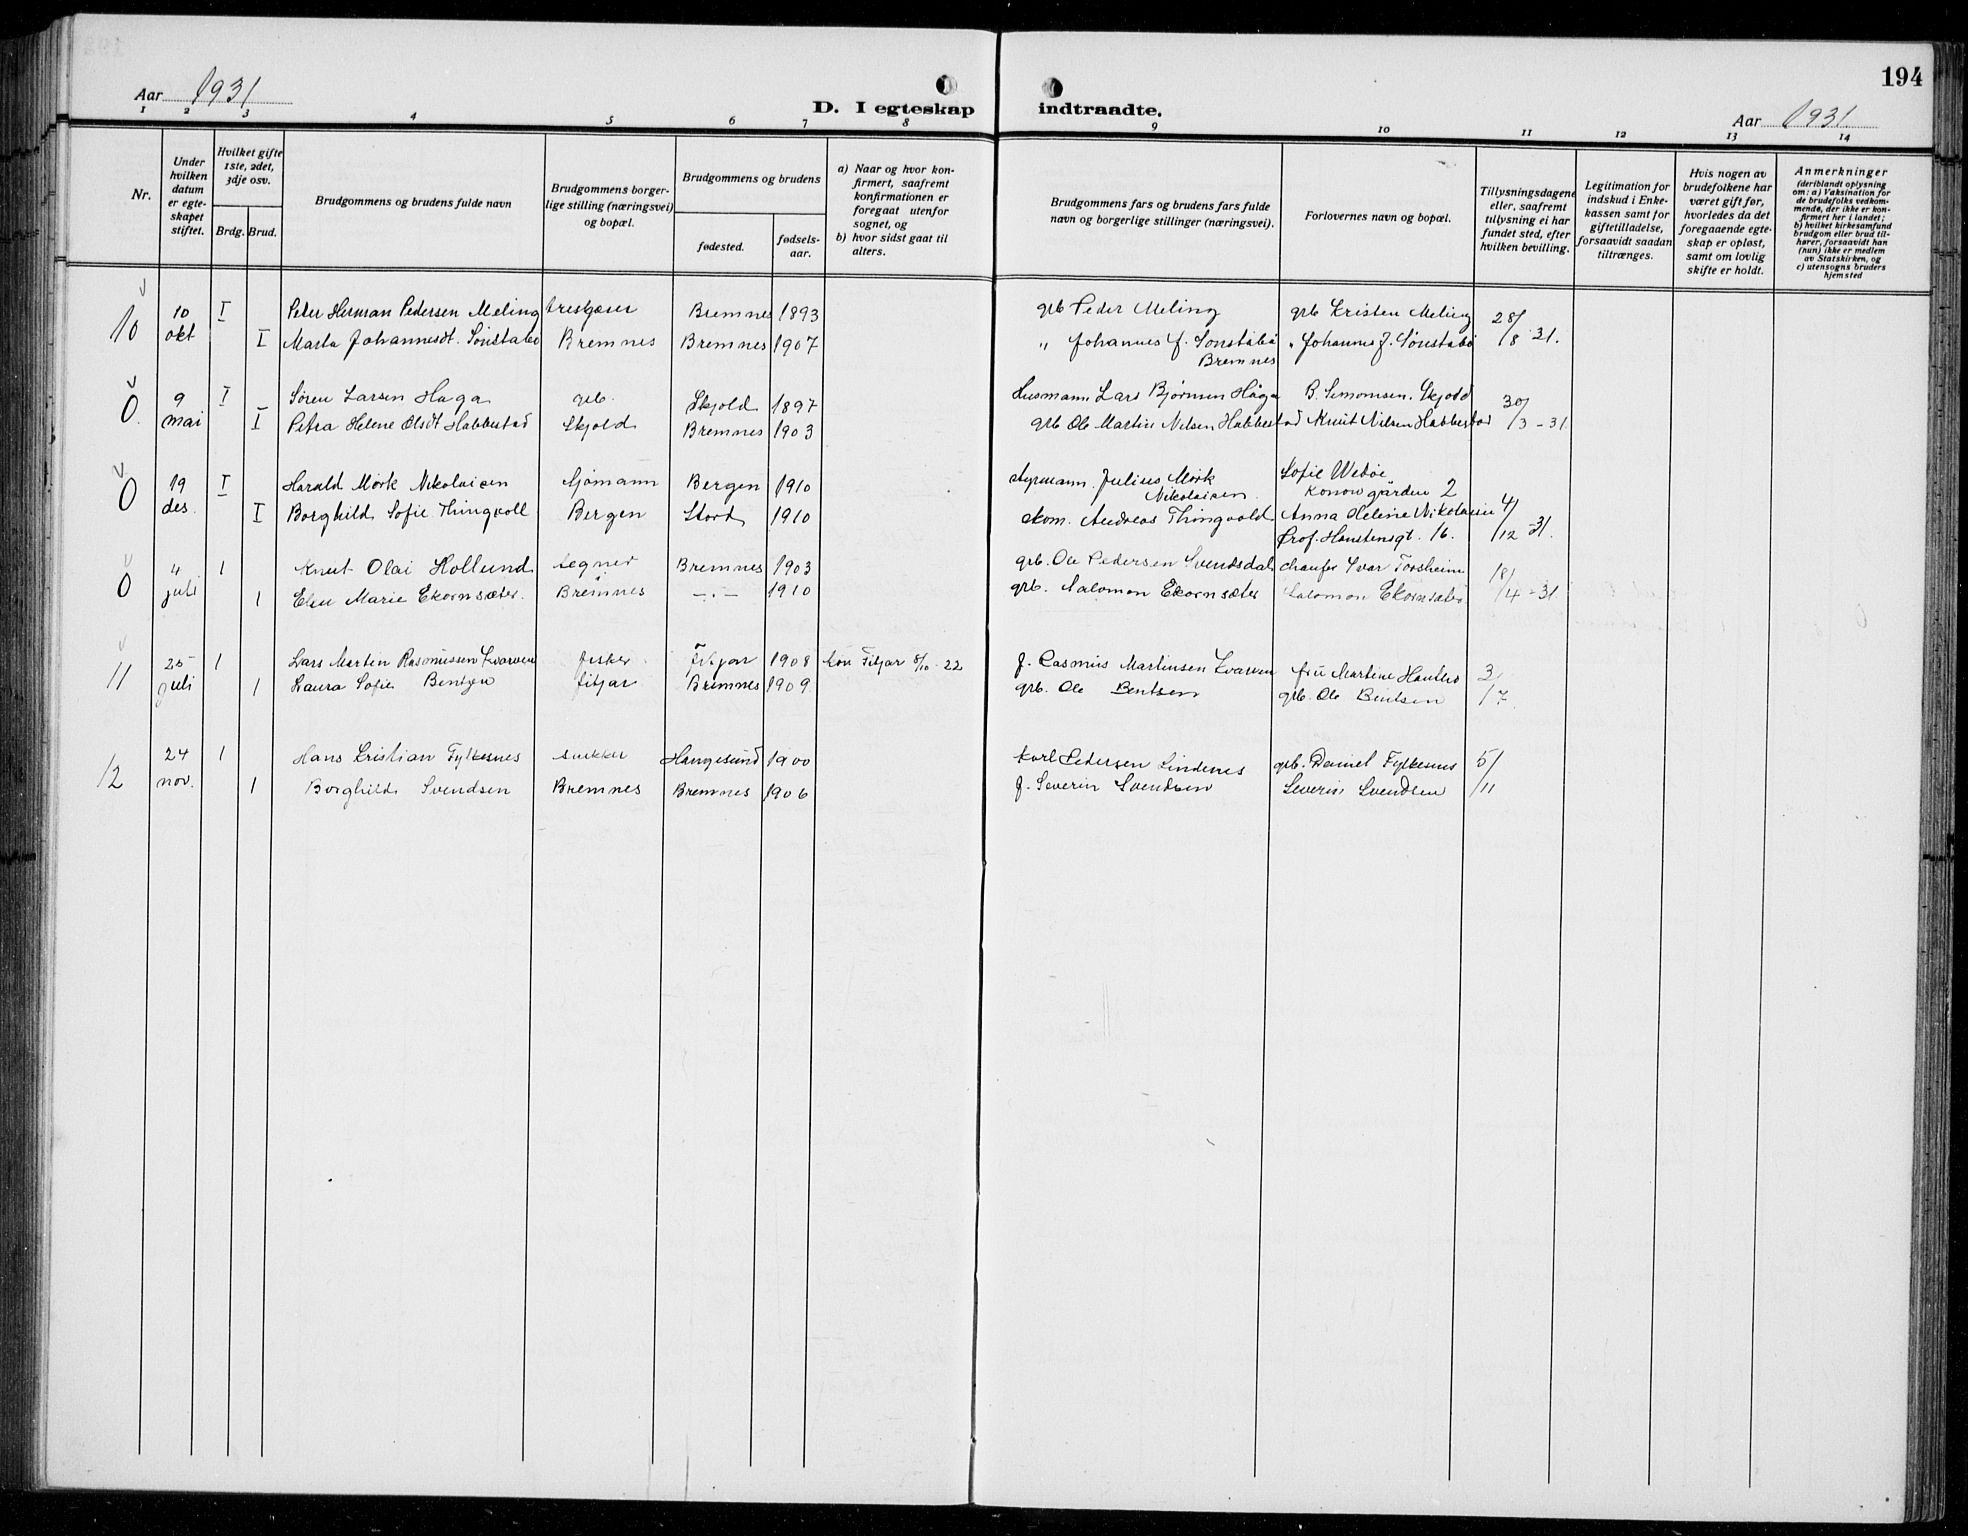 194
Aar 1931
D. I egteskap indtraadte.
Aar 1931
1 2 3 4 5 6 7 8 9 10 11 12 13 14
Nr.
Under hvilken datum er egte-skapet stiftet.
Hvilket gifte 1ste, 2det, 3dje osv.
Brdg. Brud.
Brudgommens og brudens fulde navn
Brudgommens borger-lige stilling (næringsvei) og bopæl.
Brudgommens og brudens
fødested.
fødsels-aar.
a) Naar og hvor kon-firmert, saafremt konfirmationen er foregaat utenfor sognet, og
b) hvor sidst gaat til alters.
Brudgommens fars og brudens fars fulde navn og borgerlige stillinger (næringsvei).
Forlovernes navn og bopæl.
Tillysningsdagene eller, saafremt tillysning ei har fundet sted, efter hvilken bevilling.
Legitimation for indskud i Enke-kassen samt for giftetilladelse, forsaavidt saadan tiltrænges.
Hvis nogen av brudefolkene har været gift før, hvorledes da det foregaaende egte-skap er opløst, samt om lovlig skifte er holdt.
Anmerkninger (deriblandt oplysning om: a) Vaksination for de brudefolks vedkom-mende, der ikke er kon-firmert her i landet; b) hvilket kirkesamfund brudgom eller brud til-hører, forsaavidt han (hun) ikke er medlem av Statskirken, og c) utensogns bruders hjemsted
10 10 I Peter Herman Pedersen Meling Bremnes 1893 grb Peder Meling grb Kristen Meling 28/8 31.
okt I Marta Johannesdt. Sønstabø Bremnes Bremnes 1907 " Johannes J. Sønstabø " Johannes J. Sønstabø
Bremnes
0 9 I Søren Larsen Haga grb. Skjold 1897 Husmann Lars Bjørnsen Haga B. Simonsen. Skjold 30/3 - 31.
mai I Petra Helene Olsdt Habbestad Skjold Bremnes 1903 grb Ole Martin Nilsen Habbestad Knut Nilsen Habbestad
0 19 I Harald Mørk Nikolaisen Sjømann Bergen 1910 styrmann Julius Mørk Sofie
Nikolaisen. Konowgården 2
des. I Borghild Sofie Thingvoll Bergen Stord 1910 skom. Andreas Thingvold Anna Helene Nikolaisen 4/12 - 31.
Prof. Hanstensgt. 16.
0 4 1 Knut Olai Hollund Bremnes 1903 grb. Ole Pedersen Svendsdal chaufør Ivar Torsheim 18/4 - 31
juli 1 Elen Marie Ekornsæter. Bremnes —"— 1910 grb. Salomon Ekornsæter Salomon Ekornsæter
11 25 1 Lars Martin Rasmussen Kvarven fisker Fitjar 1908 kon Fitjar 8/10 - 22 f. Rasmus Martinsen Kvarven fru Martine 3/7.
juli 1 Laura Sofie Bentzen fitjar Bremnes 1909 grb. Ole Bentsen grb. Ole Bentsen
12 24 1 Hans Kristian Fylkesnes snekker Haugesund 1900 Karl Pedersen Lindenes grb. Daniel Fylkesnes 5/11
nov. 1 Borghild Svendsen Bremnes Bremnes 1906 f. Severin Svendsen Severin Svendsen